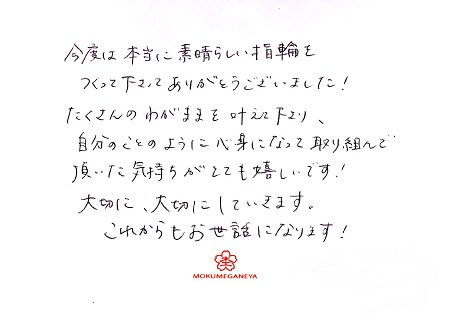 今度は本当に素晴らしい指輪を
つくって下さってありがとうございました!
たくさんのわがままを叶えて下さり、
自分のことのように心身になって取り組んで
頂いた気持ちがとても嬉しいです!
大切に、大切にしていきます。
これからもお世話になります!
木
MOKUMEGANEYA